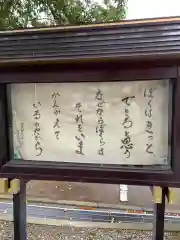 ぼくはきっと
できると思う
なぜならぼくらが
それをいま
かんがえて
いるのだから